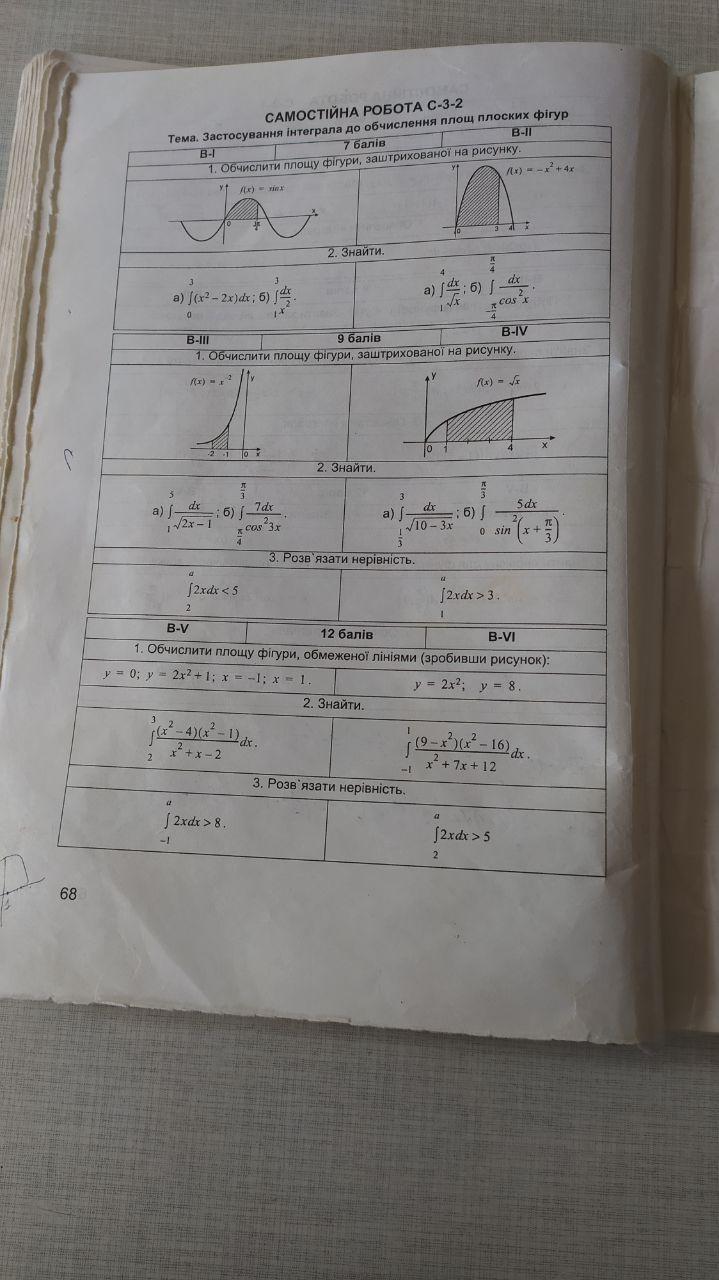 САМОСТІЙНА РОБОТА С-3-2
Тема. Застосування інтеграла до обчислення площ плоских фігур
В-І 7 балів В-ІІ
1. Обчислити площу фігури, заштрихованої на рисунку.
y f(x) = sinx x 0 3π/4
y f(x) = −x² + 4x 0 3 4 x
2. Знайти.
а) ∫₀³(x² − 2x)dx; б) ∫₁³ dx/x².
а) ∫₁⁴ dx/√x; б) ∫_{−π/4}^{π/4} dx/cos²x.
В-ІІІ 9 балів В-IV
1. Обчислити площу фігури, заштрихованої на рисунку.
f(x) = x⁻² y -2 -1 0 x
y f(x) = √x 0 1 4 x
2. Знайти.
а) ∫₁⁵ dx/√(2x − 1); б) ∫_{π/4}^{π/3} 7dx/cos²3x.
а) ∫_{1/3}^{3} dx/√(10 − 3x); б) ∫₀^{π/3} 5dx/sin²(x + π/3).
3. Розв`язати нерівність.
∫₂ᵃ 2xdx < 5
∫₁ᵃ 2xdx > 3.
В-V 12 балів В-VI
1. Обчислити площу фігури, обмеженої лініями (зробивши рисунок):
y = 0; y = 2x² + 1; x = −1; x = 1.
y = 2x²; y = 8.
2. Знайти.
∫₂³ (x² − 4)(x² − 1)/(x² + x − 2) dx.
∫₋₁¹ (9 − x²)(x² − 16)/(x² + 7x + 12) dx.
3. Розв`язати нерівність.
∫₋₁ᵃ 2xdx > 8.
∫₂ᵃ 2xdx > 5
68